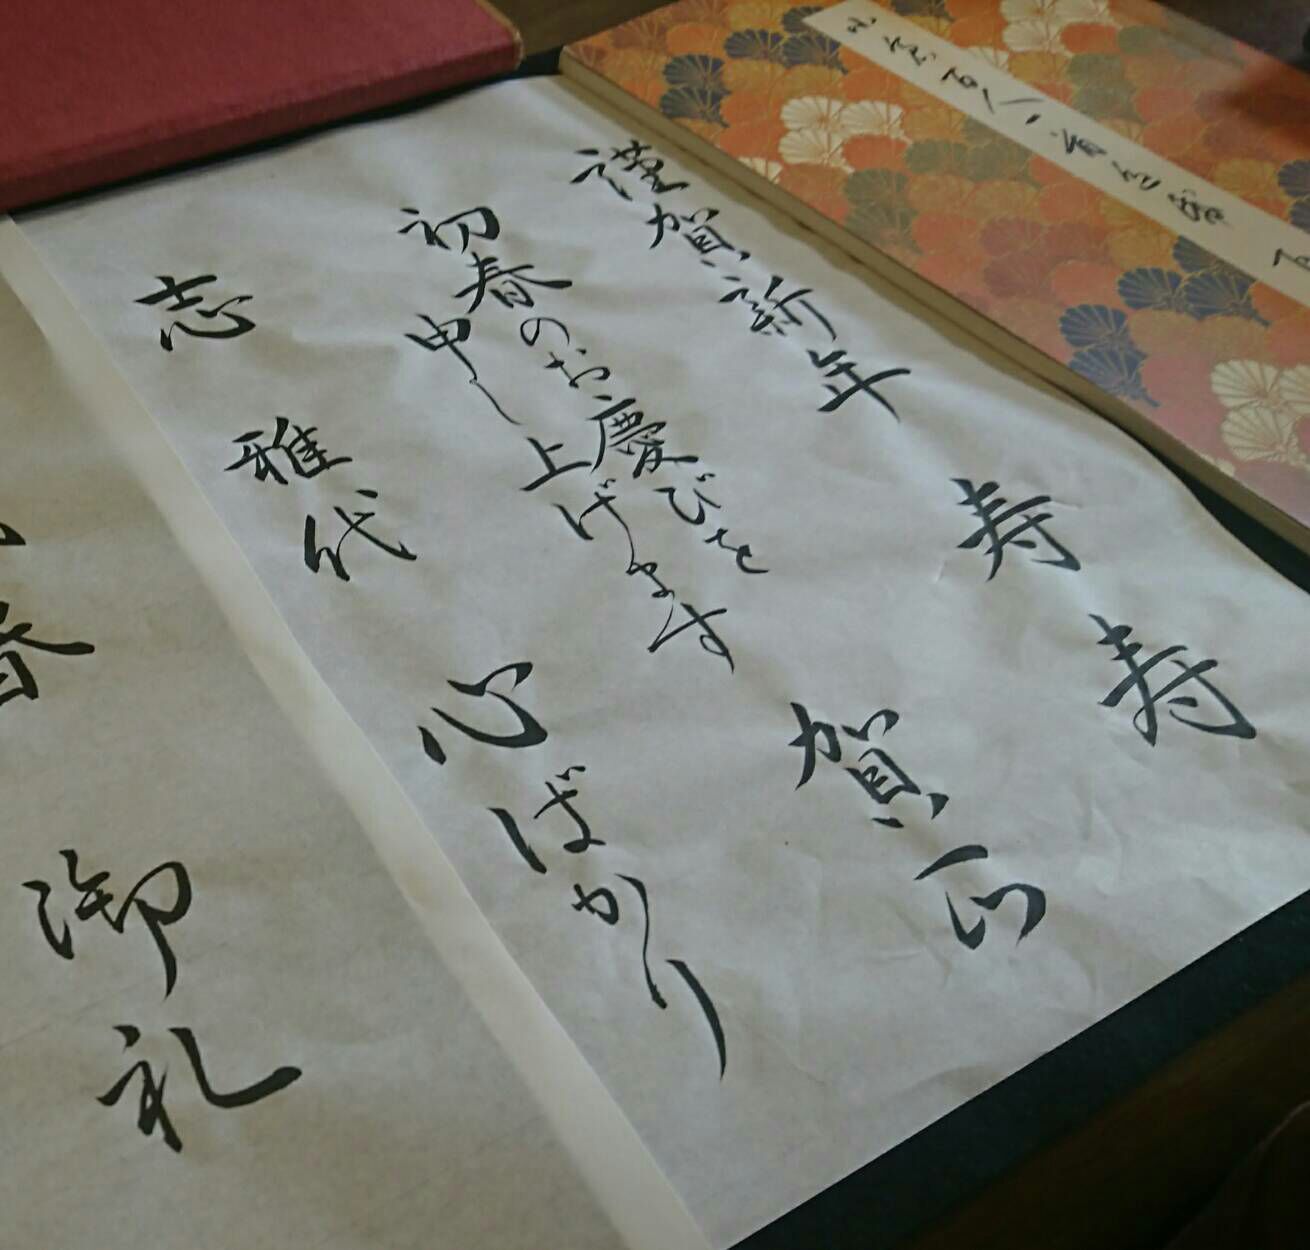 小倉百人一首
謹賀新年
寿
寿
初春のお慶びを
申し上げます
賀正
志
雅代
心ばかり
春
御礼